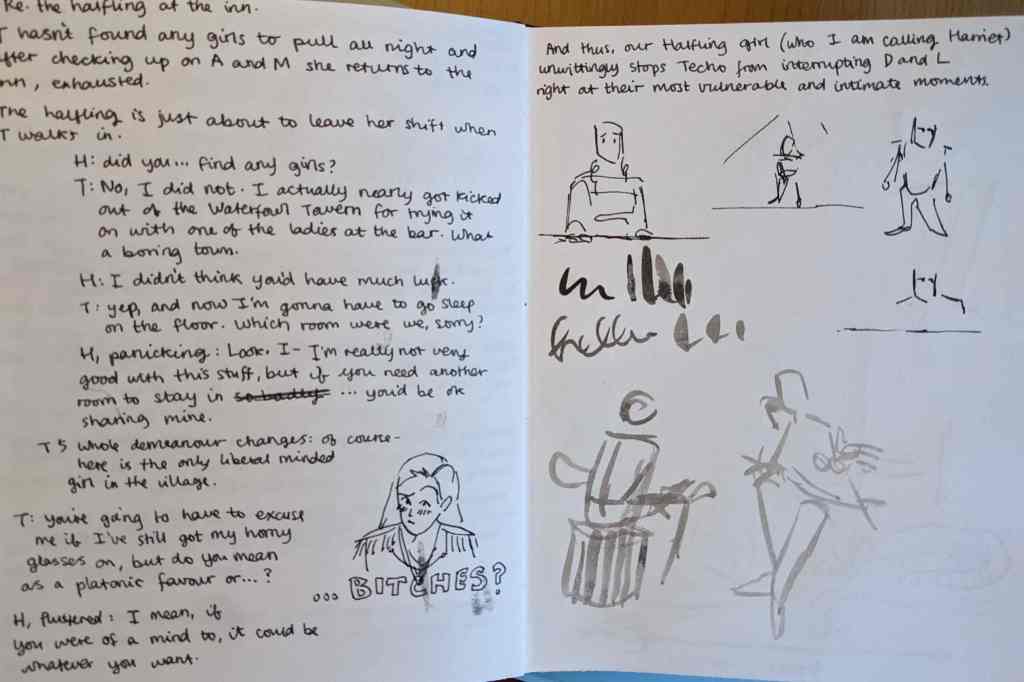 Re. the halfling at the inn.
T hasn't found any girls to pull all night and
after checking up on A and M she returns to the
inn, exhausted.
The halfling is just about to leave her shift when
T walks in.
H: did you... find any girls?
T: No, I did not. I actually nearly got kicked
out of the Waterfowl Tavern for trying it
on with one of the ladies at the bar. What
a boring town.
H: I didn't think you'd have much luck.
T: yep, and now I'm gonna have to go sleep
on the floor. Which room were we, sorry?
H, panicking: Look, I- I'm really not very
good with this stuff, but if you need another
room to stay in so badly ... you'd be ok
sharing mine.
T's whole demeanour changes: of course-
here is the only liberal minded
girl in the village.
T: you're going to have to excuse
me if I've still got my horny
glasses on, but do you mean
as a platonic favour or...?
...BITCHES?
H, flustered: I mean, if
you were of a mind to, it could be
whatever you want.
And thus, our Halfling girl (who I am calling Harriet)
unwittingly stops Techo from interrupting D and L
right at their most vulnerable and intimate moments.